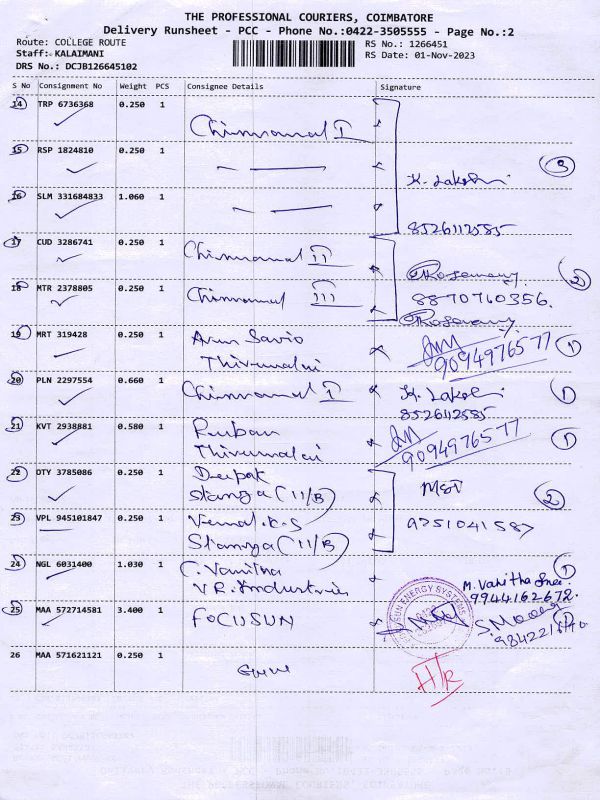 THE PROFESSIONAL COURIERS, COIMBATORE
Delivery Runsheet - PCC - Phone No.:0422-3505555 - Page No.:2
Route: COLLEGE ROUTE
Staff: KALAIMANI
DRS No.: DCJB126645102
RS No.: 1266451
RS Date: 01-Nov-2023
S No Consignment No Weight PCS Consignee Details Signature
14 TRP 6736368 0.250 1
Chinnamal I
15 RSP 1824810 0.250 1
3
K. Lakshmi
16 SLM 331684833 1.060 1
8526112585
17 CUD 3286741 0.250 1
Chinnamal II
2
18 MTR 2378805 0.250 1
Chinnamal III
8870760356.
19 MRT 319428 0.250 1
Arun Savio
Thirumalai
9094976577
1
20 PLN 2297554 0.660 1
Chinnamal I
K. Lakshmi
8526112585
1
21 KVT 2938881 0.580 1
Ruban
Thirumalai
9094976577
1
22 OTY 3785086 0.250 1
Deepak
Stanza (11/B)
2
23 VPL 945101847 0.250 1
Vemal.K.S
Stanza (11/B)
24 NGL 6031400 1.030 1
C. Vanitha
V R. Industries
M. Vanitha Sree
9944162672.
1
25 MAA 572714581 3.400 1
FOCUSUN
SUN ENERGY SYSTEMS
26 MAA 571621121 0.250 1
H/R